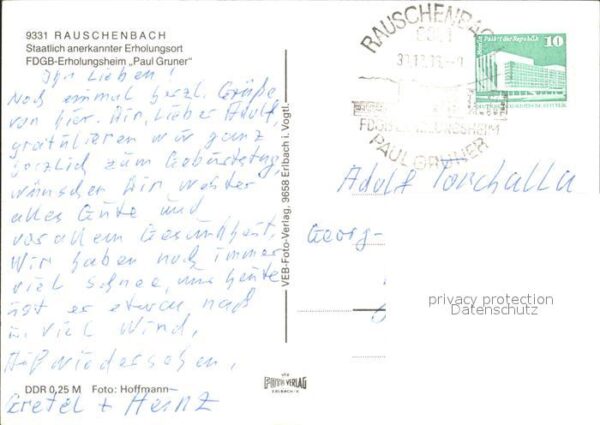 9331 RAUSCHENBACH
Staatlich anerkannter Erholungsort
FDGB-Erholungsheim „Paul Gruner"
Ihr Lieben!
Noch einmal herzl. Grüße
von hier. Dir, lieber Adolf,
gratulieren wir ganz
herzlich zum Geburtstag,
wünschen Dir weiter
alles Gute und
vor allem Gesundheit.
Wir haben noch immer
viel Schnee, nur heute
ist er etwas naß
u. viel Wind.
Auf Wiedersehen,
Gretel + Heinz
DDR 0,25 M Foto: Hoffmann
VEB-Foto-Verlag, 9658 Erlbach i. Vogtl.
VEB
FOTO VERLAG
ERLBACH-V.
RAUSCHENBACH
9331
FDGB ERHOLUNGSHEIM
PAUL GRUNER
Berlin Palast der Republik
10
Adolf
Georg-
privacy protection
Datenschutz